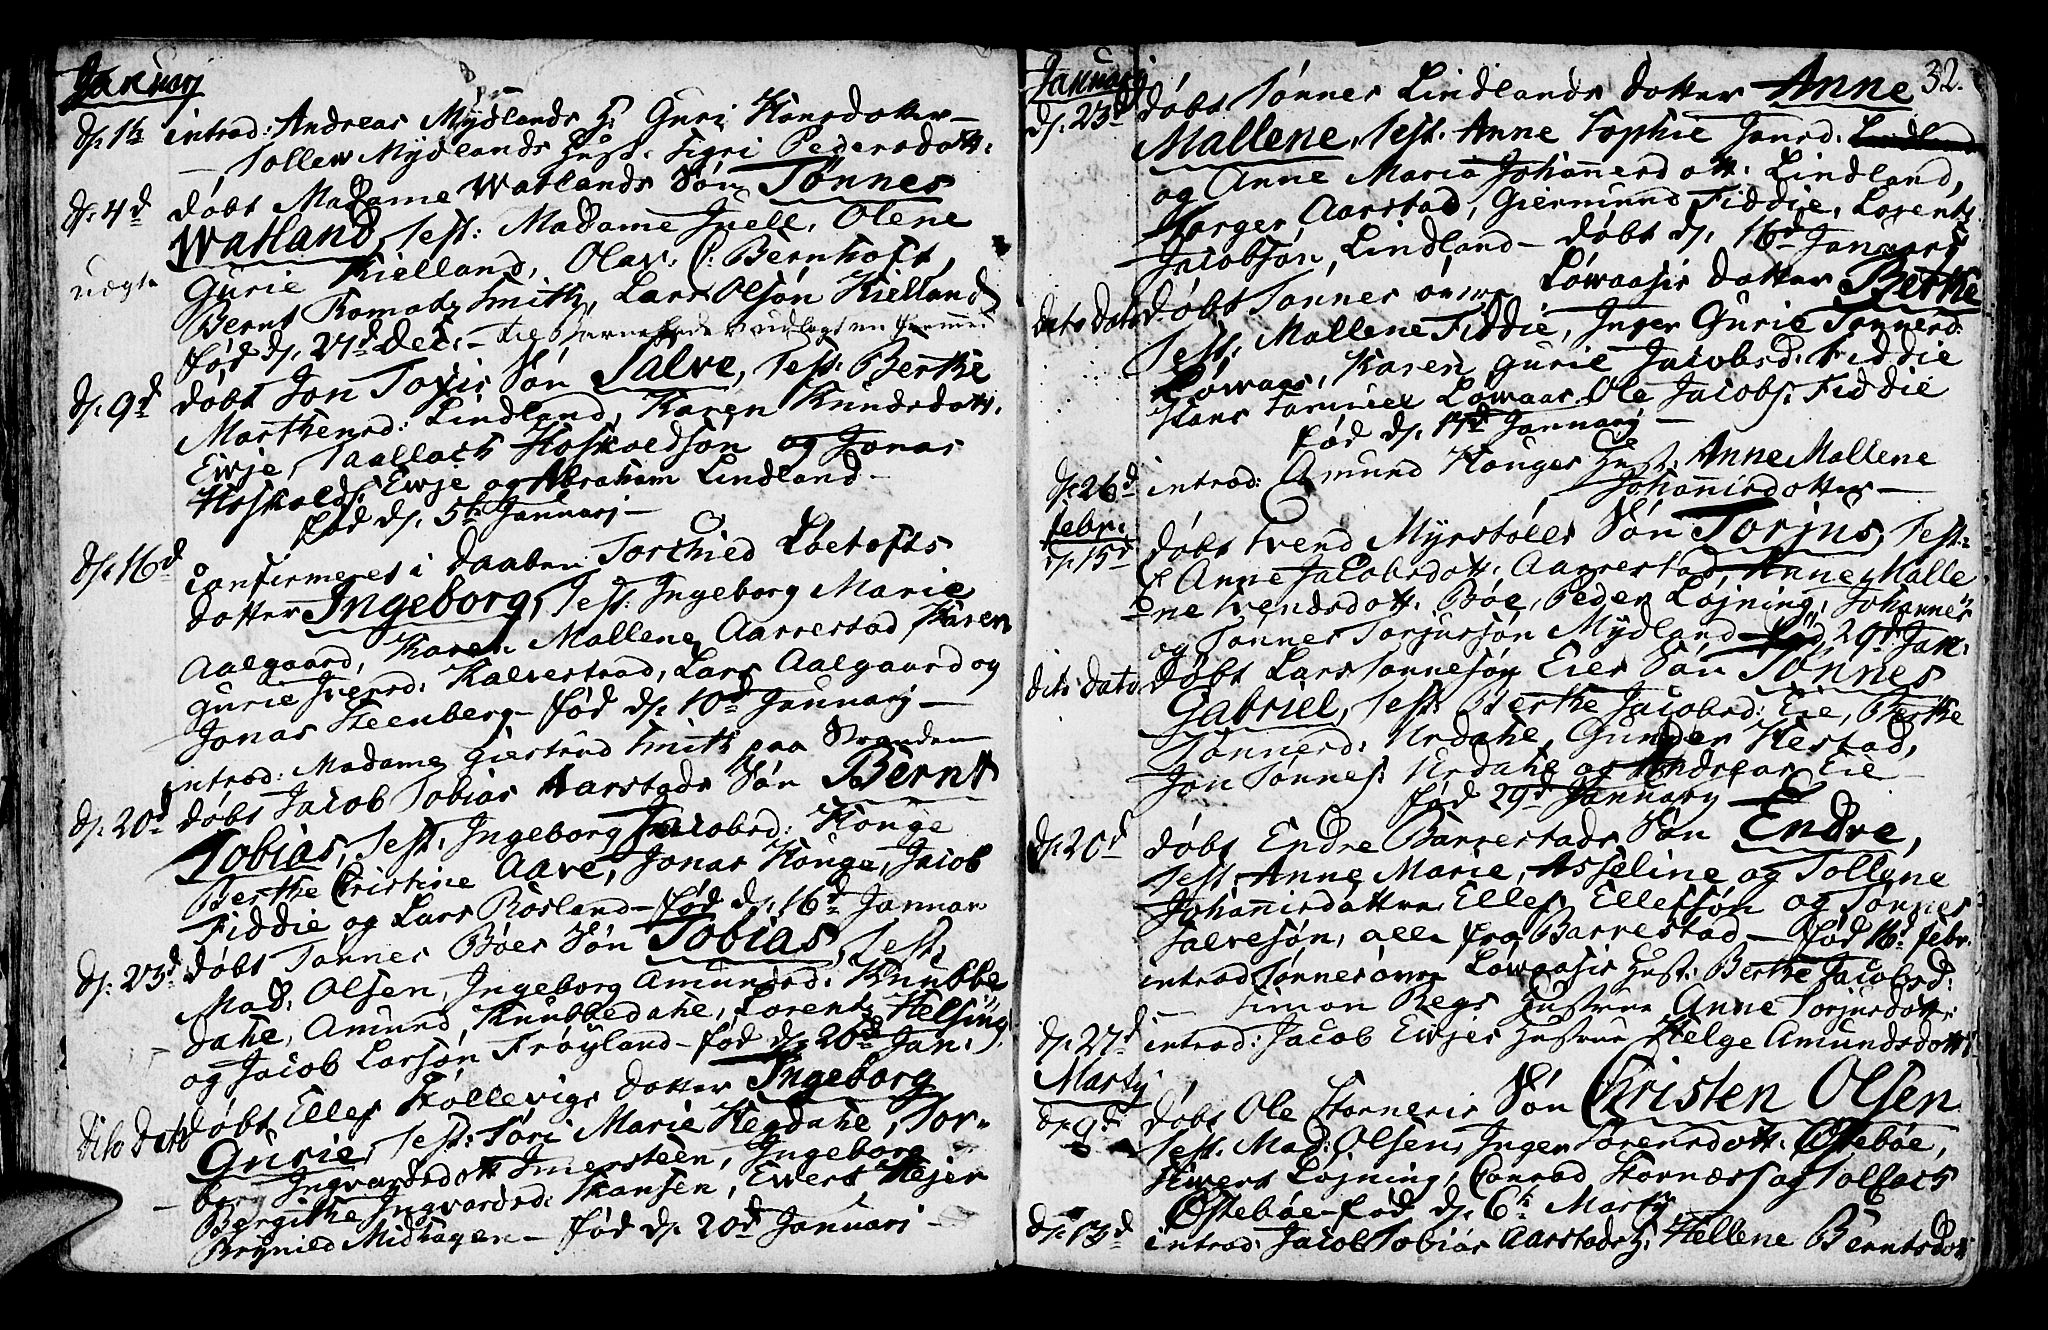 Januarj
d. 1te introd: Andreas Mydlands H. Guri Hansdotter —
— Tollew Mydlands Hust. Sigri Pedersdott:
d. 4d döbt Madame Watlands Sön Tönnes
Watland, Test: Madame Juell, Olene
uægte Gurie Kielland, Olav: C: Bernhoft,
Bernt Smith, Lars Olsön Kielland
fød d. 27d Dec. —
d. 9d döbt Jon Sön Salve, Test: Berthe
Marthensd: Lindland, Karen Knudsdott.
Ewje, Taallach Hoskoldsön og Jonas
Hoskolds: Ewje og Abraham Lindland —
fød d. 5te Januarj —
d. 16d Confirmeres i Daaben Torchied Løetofts
dotter Ingeborg, Test: Ingeborg Marie
Aalgaard, Karen Mallene Aarrestad, Karen
Gurie Iversd: Kalvestrad, Lars Aalgaard og
Jonas Steenberg — fød d. 10d Januarj —
introd: Madame Giertrud Smith paa Stranden
d. 20d döbt Jacob Tobias Aarstads Sön Bernt
Tobias, Test. Ingeborg Jacobsd: Houge
Berthe Cristine Aave, Jonas Houge, Jacob
Fiddie og Lars Rosland — fød d. 16d Januar
d. 23d döbt Tønnes Böes Sön Tobias, Test:
Mad: Olsen, Ingeborg Amundsd: Knubbe
dahe, Amund Knubbedahe, Lorentz Helsing
og Jacob Larsön Fröyland — fød d. 20d Jan:
dito dato döbt Elles Skollevigs dotter Ingeborg
Gurie, Test: Siri Marie Hegdahe, Tor-
borg Ingvardsdott Imersteen, Ingeborg
Bergithe Ingvardsd: Skansen, Ewert Hejer
Brynild Midhagen — fød d. 20d Januari —
Januarj 32.
d. 23d döbt Tönnes Lindlands dotter Anne
Mallene, Test. Anne Sophie Jansd:
og Anne Maria Johannesdott: Lindland,
Torger Aarstad, Giermund Fiddie, Lorentz
Jacobsön Lindland — döbt d. 16d Januarj
dito dato döbt Tønnes Löwaasis dotter Berthe
Test: Mallene Fiddie, Inger Gurie Tönnesd:
Löwaas, Karen Gurie Jacobsd: Fiddie
Hans Løwaas, Ole Jacobs: Fiddie
fød d. 17d Januarj —
d. 26d introd: Amund Houges Hust: Anne Mallene
Johannisdotter —
Febr:
d. 15d döbt Svend Myrstöls Sön Torjus, Test:
Anne Jacobsdott. Aarrestad, Anne Malle
ne Svendsdott. Böe, Peder Løjning, Johannes
og Tønnes Torjussön Mydland — fød 29d Jan:
dito dato döbt Lars Tønnesön Eies Sön Tönnes
Gabriel, Test: Berthe Jacobsd: Eie, Berthe
Tönnesd: Urdahe, Gunder Hestad,
Jon Tønnes: Urdahe og Andreas Eie —
fød 29d Januarij —
d. 20d döbt Endre Barrestads Sön Endre,
Test: Anne Marie, Asseline og Tollyne
Johannisdattre, Elles Ellefsön og Tønnes
Salvesön, alle fra Barrestad — fød 16d febr.
introd: Tønnes Løwaasis Hust: Berthe Jacobsd:
— Simon Regs Hustrue Anne Torjusdott:
d. 27d introd: Jacob Ewjes Hustrue Helge Amundsdott:
Martij
d. 9d döbt Ole Stornesis Sön Christen Olsen
Test. Mad: Olsen, Inger Sörensdott: Østebøe,
Siwert Løjning, Conrad Stornæss og Tollach
Østebøe — fød d. 6te Martij
d. 13d introd: Jacob Tobias Aarstads H: Hellene Berntsdott